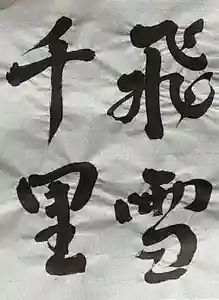 飛雪
千里